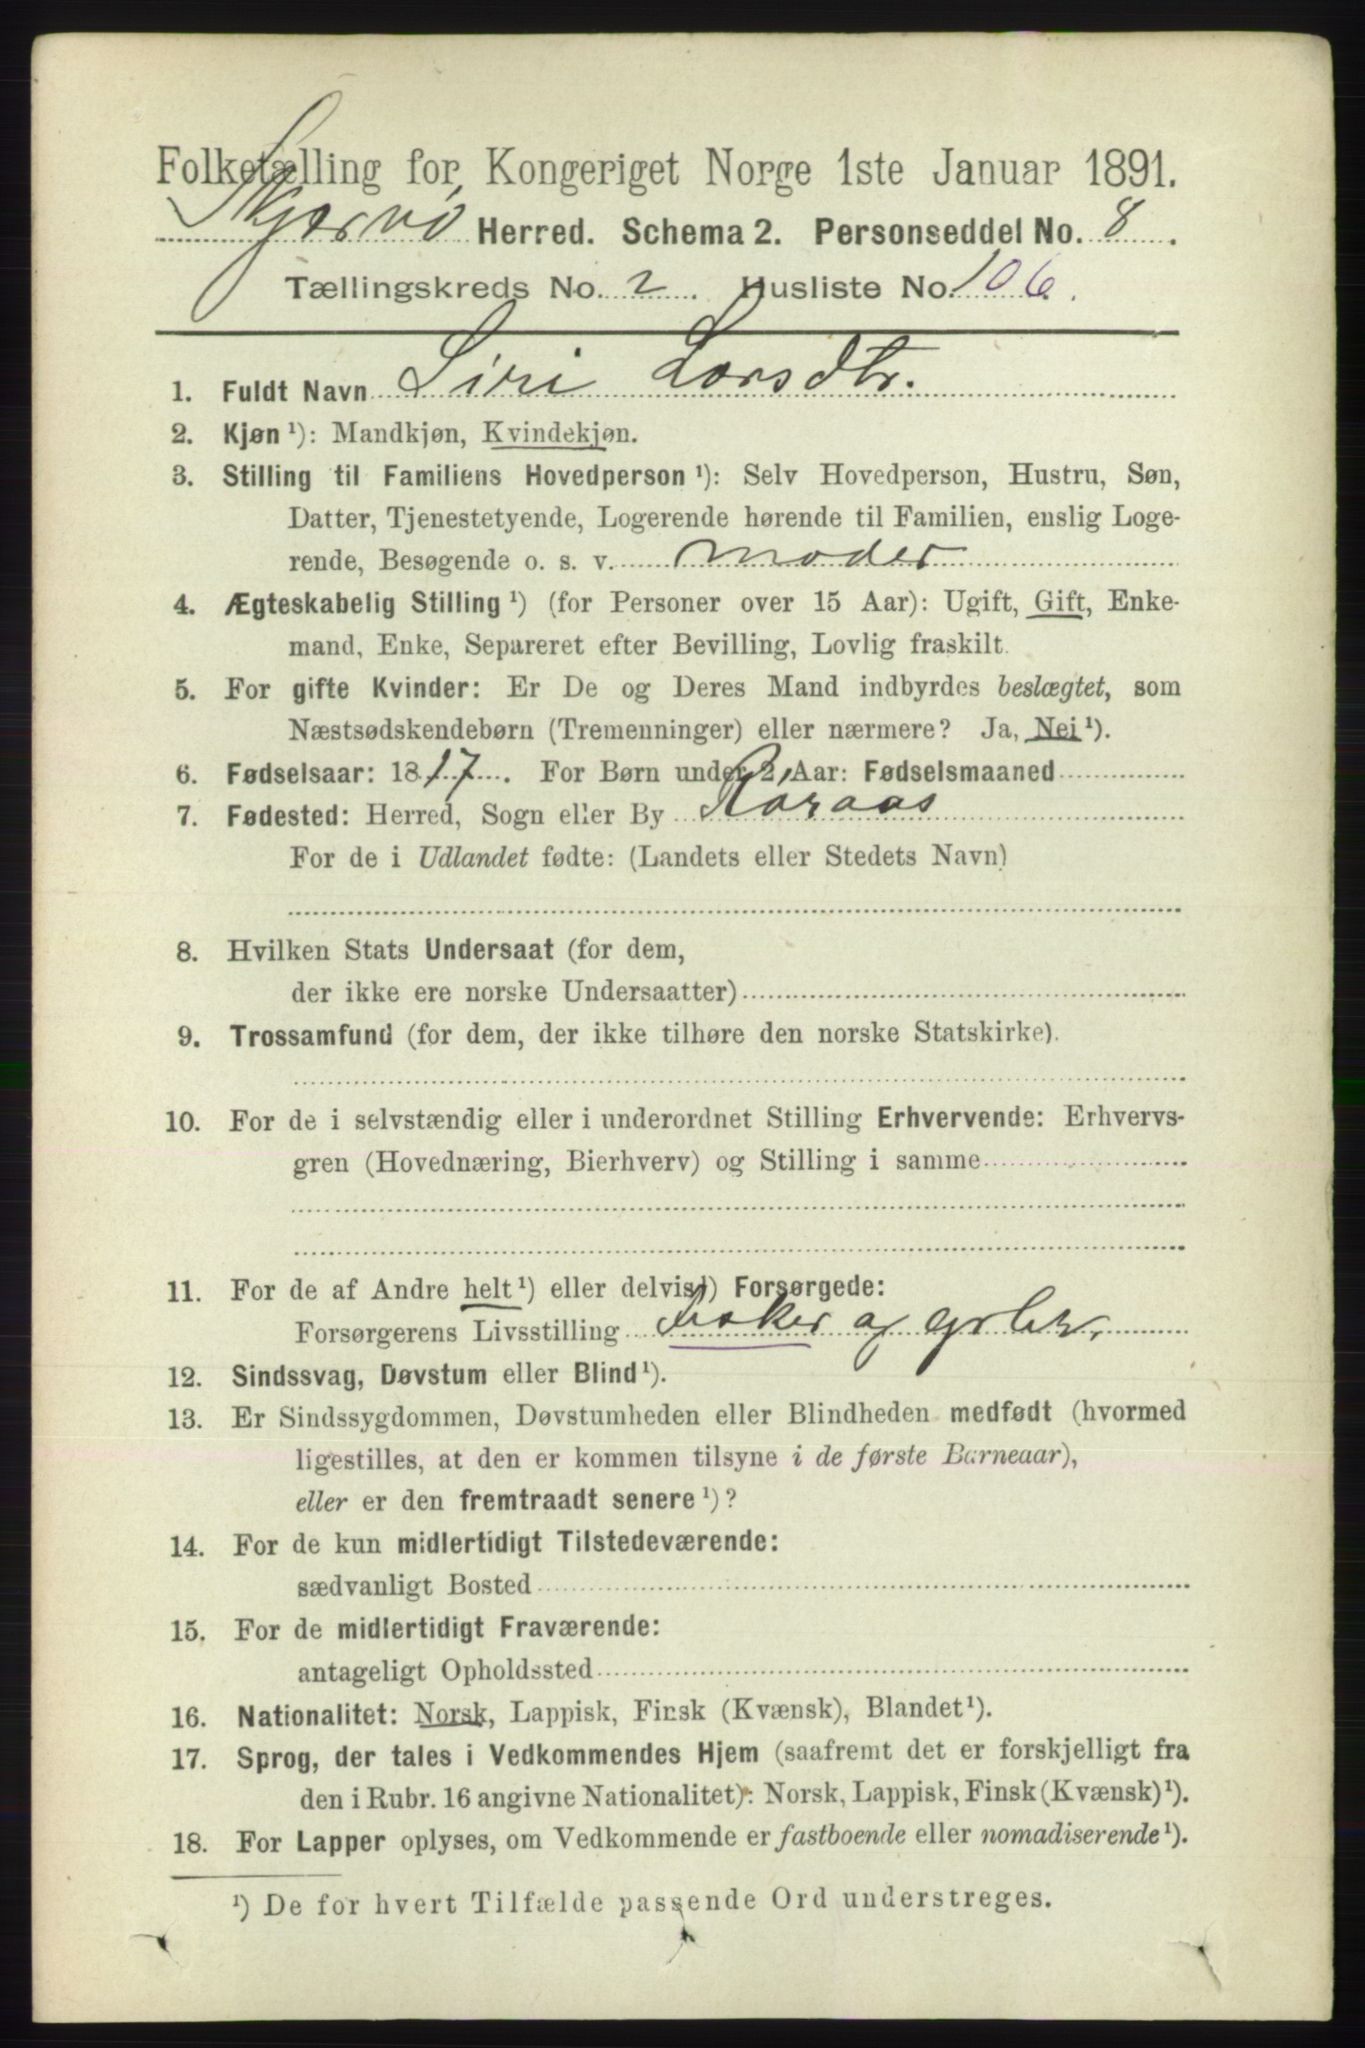 Folketælling for Kongeriget Norge 1ste Januar 1891.
Skjervø Herred. Schema 2. Personseddel No. 8.
Tællingskreds No. 2. Husliste No. 106.
1. Fuldt Navn Siri Larsdtr.
2. Kjøn ¹): Mandkjøn, Kvindekjøn.
3. Stilling til Familiens Hovedperson ¹): Selv Hovedperson, Hustru, Søn,
Datter, Tjenestetyende, Logerende hørende til Familien, enslig Loge-
rende, Besøgende o. s. v. moder
4. Ægteskabelig Stilling ¹) (for Personer over 15 Aar): Ugift, Gift, Enke-
mand, Enke, Separeret efter Bevilling, Lovlig fraskilt.
5. For gifte Kvinder: Er De og Deres Mand indbyrdes beslægtet, som
Næstsødskendebørn (Tremenninger) eller nærmere? Ja, Nei ¹).
6. Fødselsaar: 1817. For Børn under 2 Aar: Fødselsmaaned
7. Fødested: Herred, Sogn eller By Røraas
For de i Udlandet fødte: (Landets eller Stedets Navn)
8. Hvilken Stats Undersaat (for dem,
der ikke ere norske Undersaatter)
9. Trossamfund (for dem, der ikke tilhøre den norske Statskirke).
10. For de i selvstændig eller i underordnet Stilling Erhvervende: Erhvervs-
gren (Hovednæring, Bierhverv) og Stilling i samme
11. For de af Andre helt ¹) eller delvis ¹) Forsørgede:
Forsørgerens Livsstilling fisker og
12. Sindssvag, Døvstum eller Blind ¹).
13. Er Sindssygdommen, Døvstumheden eller Blindheden medfødt (hvormed
ligestilles, at den er kommen tilsyne i de første Barneaar),
eller er den fremtraadt senere ¹)?
14. For de kun midlertidigt Tilstedeværende:
sædvanligt Bosted
15. For de midlertidigt Fraværende:
antageligt Opholdssted
16. Nationalitet: Norsk, Lappisk, Finsk (Kvænsk), Blandet ¹).
17. Sprog, der tales i Vedkommendes Hjem (saafremt det er forskjelligt fra
den i Rubr. 16 angivne Nationalitet): Norsk, Lappisk, Finsk (Kvænsk) ¹).
18. For Lapper oplyses, om Vedkommende er fastboende eller nomadiserende ¹).
¹) De for hvert Tilfælde passende Ord understreges.